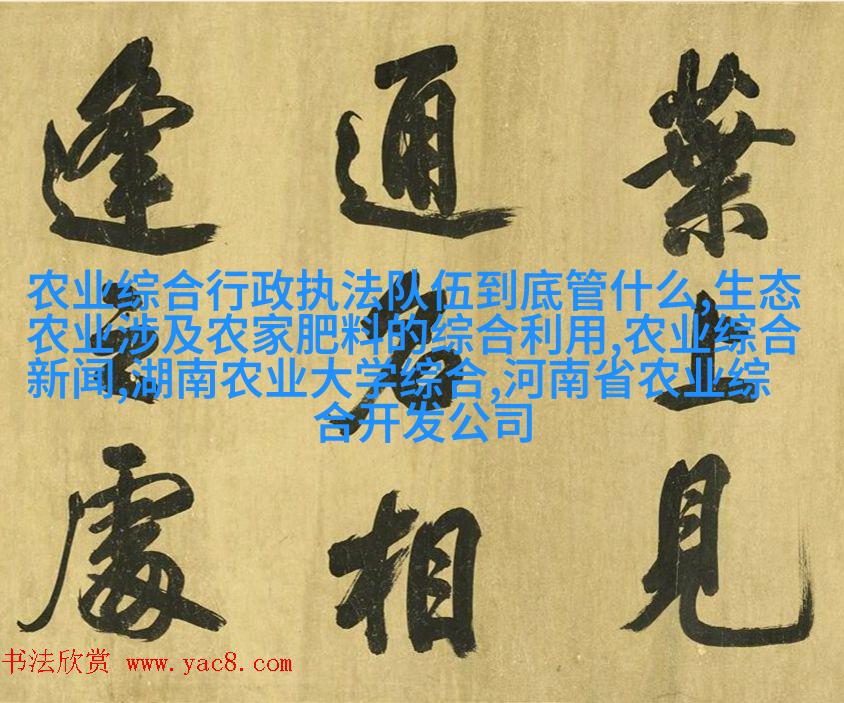 葉上見
通名相
逢處
农业综合行政执法队伍到底管什么,生态
农业涉及农家肥料的综合利用,农业综合
新闻,湖南农业大学综合,河南省农业综
合开发公司
书法欣赏 www.yac8.com